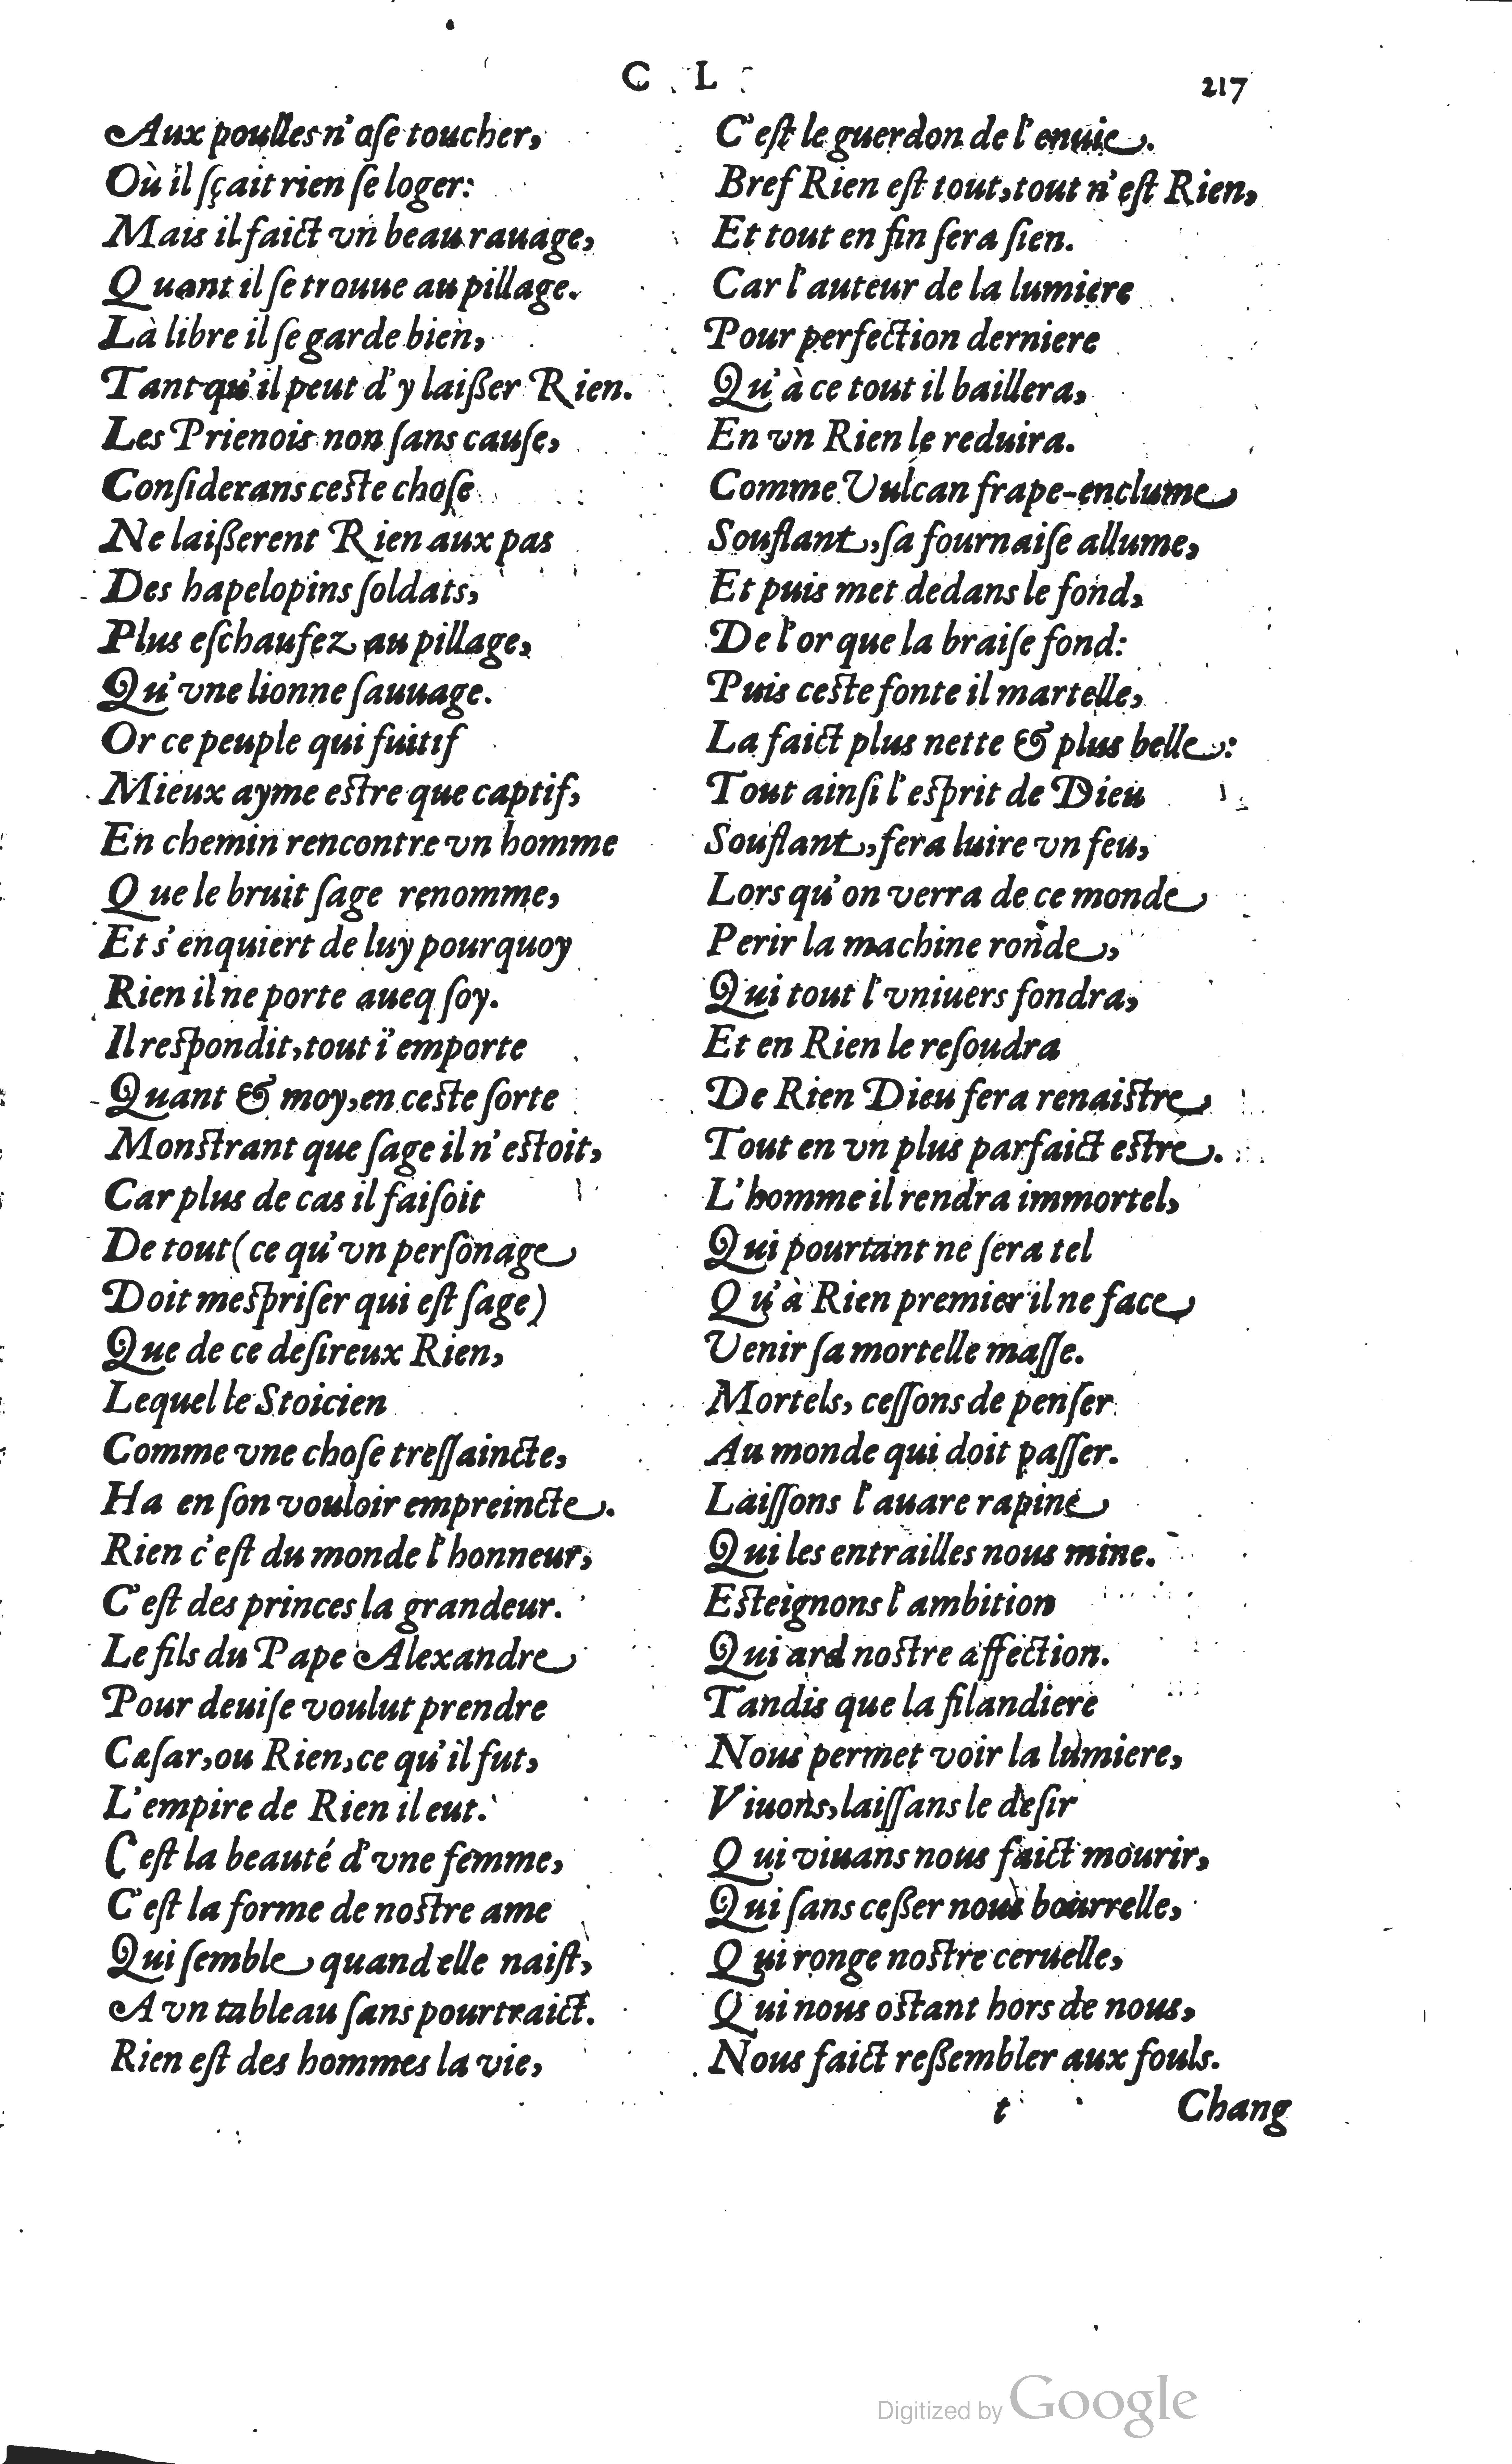 C L
217
Aux poulles n'ose toucher,
Où il sçait rien se loger:
Mais il faict vn beau rauage,
Quant il se trouue au pillage.
Là libre il se garde bien,
Tant qu'il peut d'y laißer Rien.
Les Prienois non sans cause,
Considerans ceste chose
Ne laißerent Rien aux pas
Des hapelopins soldats,
Plus eschaufez au pillage,
Qu'vne lionne sauuage.
Or ce peuple qui fuitif
Mieux ayme estre que captif,
En chemin rencontre vn homme
Que le bruit sage renomme,
Et s'enquiert de luy pourquoy
Rien il ne porte aueq soy.
Il respondit, tout i'emporte
Quant & moy, en ceste sorte
Monstrant que sage il n'estoit,
Car plus de cas il faisoit
De tout (ce qu'vn personage
Doit mespriser qui est sage)
Que de ce desireux Rien,
Lequel le Stoicien
Comme vne chose tressaincte,
Ha en son vouloir empreincte.
Rien c'est du monde l'honneur,
C'est des princes la grandeur.
Le fils du Pape Alexandre
Pour deuise voulut prendre
Cæsar, ou Rien, ce qu'il fut,
L'empire de Rien il eut.
C'est la beauté d'vne femme,
C'est la forme de nostre ame
Qui semble quand elle naist,
A vn tableau sans pourtraict.
Rien est des hommes la vie,
C'est le guerdon de l'enuie.
Bref Rien est tout, tout n'est Rien,
Et tout en fin sera sien.
Car l'auteur de la lumiere
Pour perfection derniere
Qu'à ce tout il baillera,
En vn Rien le reduira.
Comme Vulcan frape-enclume
Souflant, sa fournaise allume,
Et puis met dedans le fond,
De l'or que la braise fond:
Puis ceste fonte il martelle,
La faict plus nette & plus belle:
Tout ainsi l'esprit de Dieu
Souflant, fera luire vn feu,
Lors qu'on verra de ce monde
Perir la machine ronde,
Qui tout l'vniuers fondra,
Et en Rien le resoudra
De Rien Dieu fera renaistre
Tout en vn plus parfaict estre.
L'homme il rendra immortel,
Qui pourtant ne sera tel
Qu'à Rien premier il ne face
Venir sa mortelle masse.
Mortels, cessons de penser
Au monde qui doit passer.
Laissons l'auare rapine
Qui les entrailles nous mine.
Esteignons l'ambition
Qui ard nostre affection.
Tandis que la filandiere
Nous permet voir la lumiere,
Viuons, laissans le desir
Qui viuans nous faict mourir,
Qui sans ceßer nous bourrelle,
Qui ronge nostre ceruelle,
Qui nous ostant hors de nous,
Nous faict reßembler aux fouls.
t
Chang
Digitized by Google